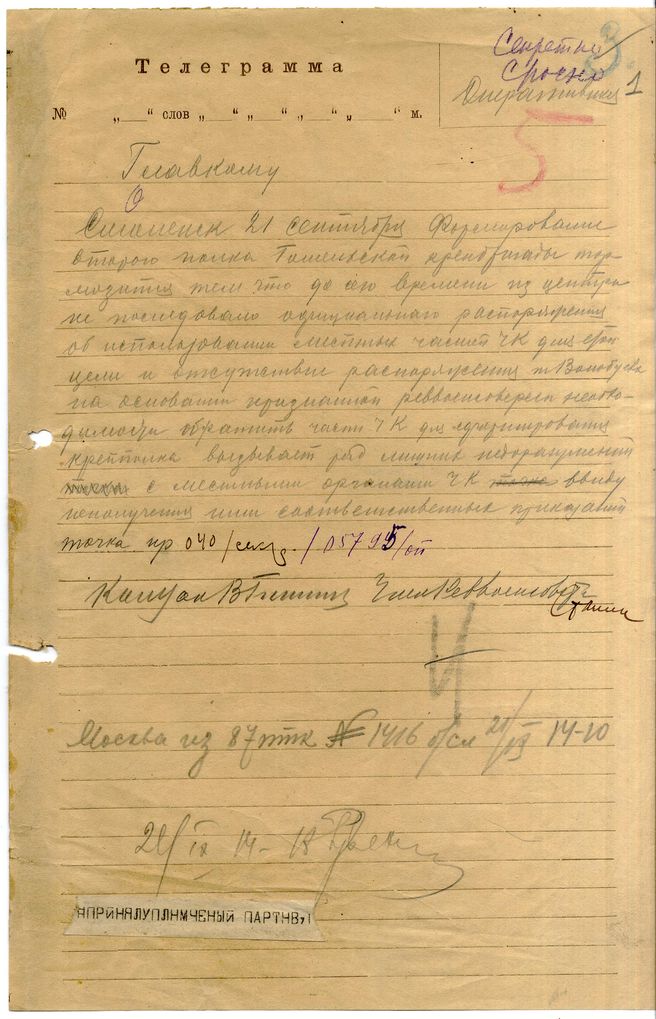 Секретно
Срочно
3
Оперативная 1
Телеграмма
№ „ “ слов „ “ „ “ „ “ „ “ м.
5
Главкому
О
Смоленск 21 сентября Формирование
второго полка Гомельской крепбригады тор-
мозится тем что до сего времени из центра
не последовало официального распоряжения
об использовании местных частей ЧК для этой
цели и отсутствие распоряжения т
на основании признанной реввоенсоветом необхо-
димости обратить части ЧК для сформирования
крепполка вызывает ряд лишних недоразумений
с местными органами ЧК ввиду
неполучения ими соответственных приказаний
точка нр 040/секр. /05795/оп
Член Реввоенсовета
Сталин
4
Москва из 87 птк № 1416 о/сл 21/IX 14-10
21/IX 14-18
ЯПРИНЯЛУПЛНМЧЕНЫЙ ПАРТНВ,1